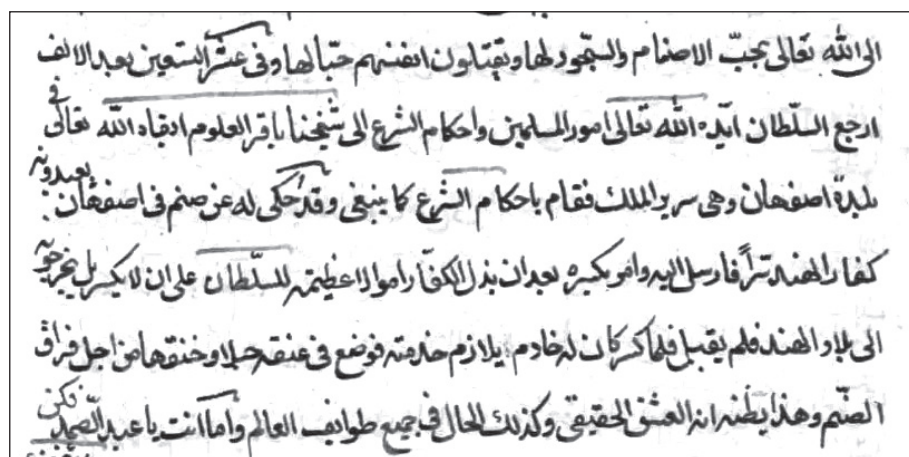 الى الله تعالى بحبّ الاصنام والسّجود لها ويقتلون انفسهم حبّا لها وفى عشر التسعين بعد الالف
ارجع السلّطان ايّده الله تعالى امور المسلمين واحكام الشرع الى شيخنا باقر العلوم ابقاه الله تعالى فى
بلدة اصفهان وهى سرير الملك فقام باحكام الشرع كما ينبغى وقد حكى له عن صنم فى اصفهان يعبدونه
كفار الهند سرّاً فارسل اليه وامر بكسره بعد ان بذل الكفّار اموالا عظيمة للسلّطان على ان لا يكسر بل يخرجونه
الى بلاد الهند فلم يقبل فلما كسر كان له خادم يلازم خدمته فوضع فى عنقه حبلا وخنقها من اجل فراق
الصنّم وهذا يظنه انه العشق الحقيقى وكذلك الحال فى جميع طوايف العالم واما انت يا عبد الصّمد فكن